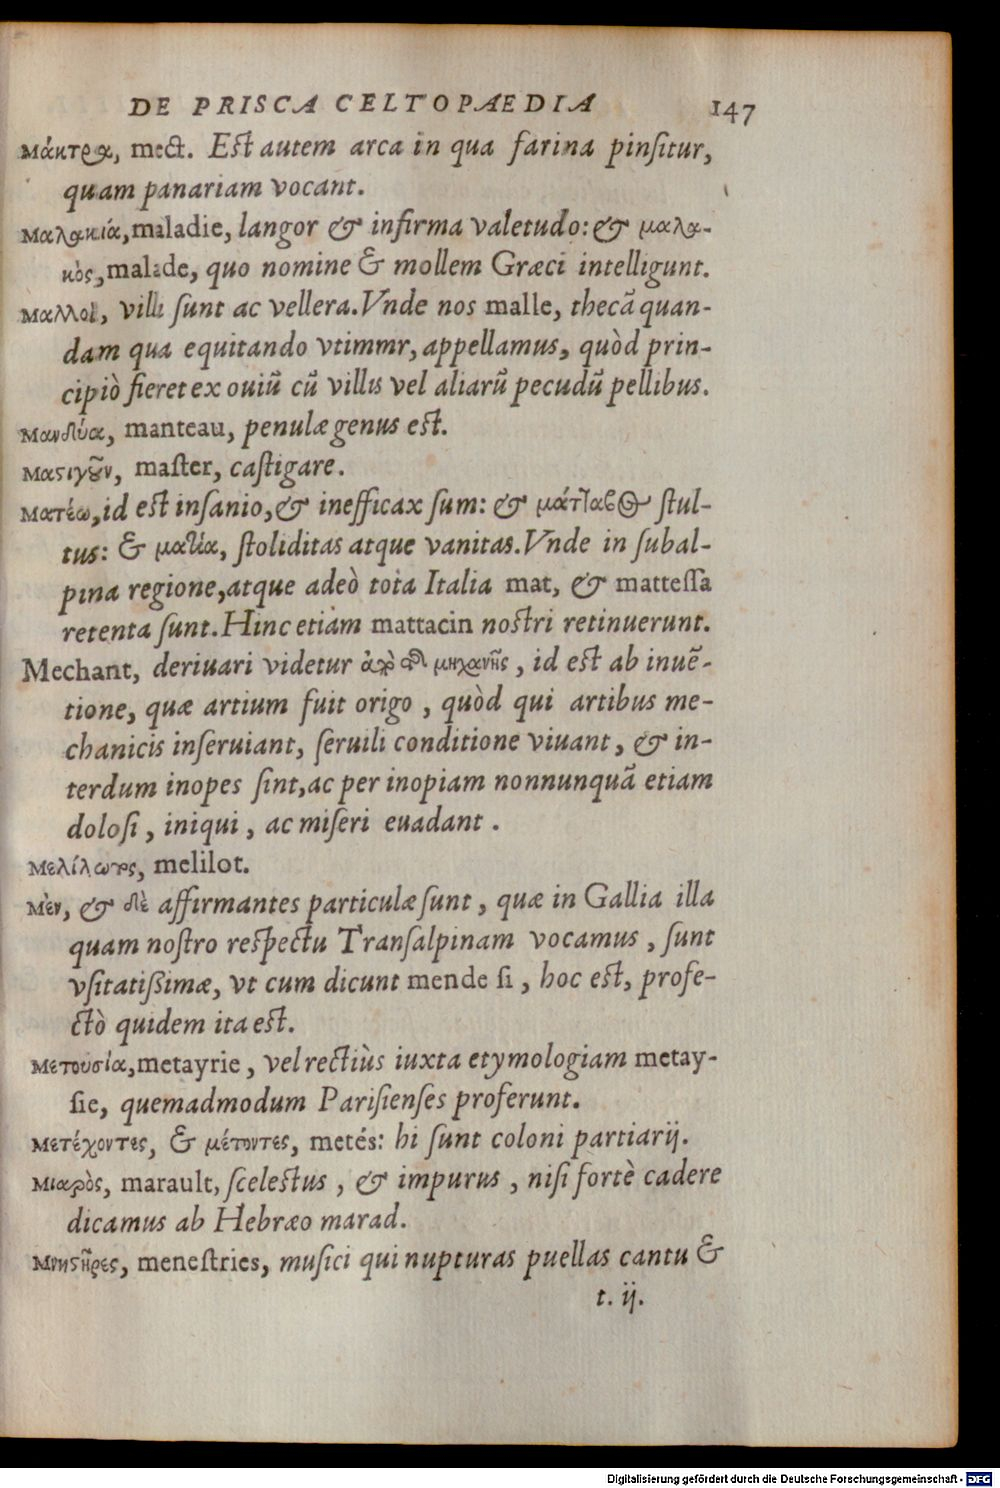 DE PRISCA CELTOPAEDIA 147
Μάκτρα, mect. Est autem arca in qua farina pinsitur,
quam panariam vocant.
Μαλακία, maladie, langor & infirma valetudo: & μαλα-
κὸς, malade, quo nomine & mollem Græci intelligunt.
Μαλλοὶ, villi sunt ac vellera. Vnde nos malle, thecā quan-
dam qua equitando vtimmr, appellamus, quòd prin-
cipiò fieret ex ouiũ cũ villis vel aliarũ pecudũ pellibus.
Μανδύα, manteau, penulæ genus est.
Μαςιγοῦν, master, castigare.
Ματέω, id est insanio, & inefficax sum: & μάταιος stul-
tus: & ματία, stoliditas atque vanitas. Vnde in subal-
pina regione, atque adeò tota Italia mat, & mattessa
retenta sunt. Hinc etiám mattacin nostri retinuerunt.
Mechant, deriuari videtur ἀπὸ τῆς μηχανῆς, id est ab inuē-
tione, quæ artium fuit origo, quòd qui artibus me-
chanicis inseruiant, seruili conditione viuant, & in-
terdum inopes sint, ac per inopiam nonnunquā etiam
dolosi, iniqui, ac miseri euadant.
Μελίλωτος, melilot.
Μὲν, & δὲ affirmantes particulæ sunt, quæ in Gallia illa
quam nostro respectu Transalpinam vocamus, sunt
vsitatißimæ, vt cum dicunt mende si, hoc est, profe-
ctò quidem ita est.
Μετουσία, metayrie, vel rectiùs iuxta etymologiam metay-
sie, quemadmodum Parisienses proferunt.
Μετέχοντες, & μέτοντες, metés: hi sunt coloni partiarij.
Μιαρὸς, marault, scelestus, & impurus, nisi fortè cadere
dicamus ab Hebræo marad.
Μνηςῆρες, menestries, musici qui nupturas puellas cantu &
t. ij.
Digitalisierung gefördert durch die Deutsche Forschungsgemeinschaft - DFG